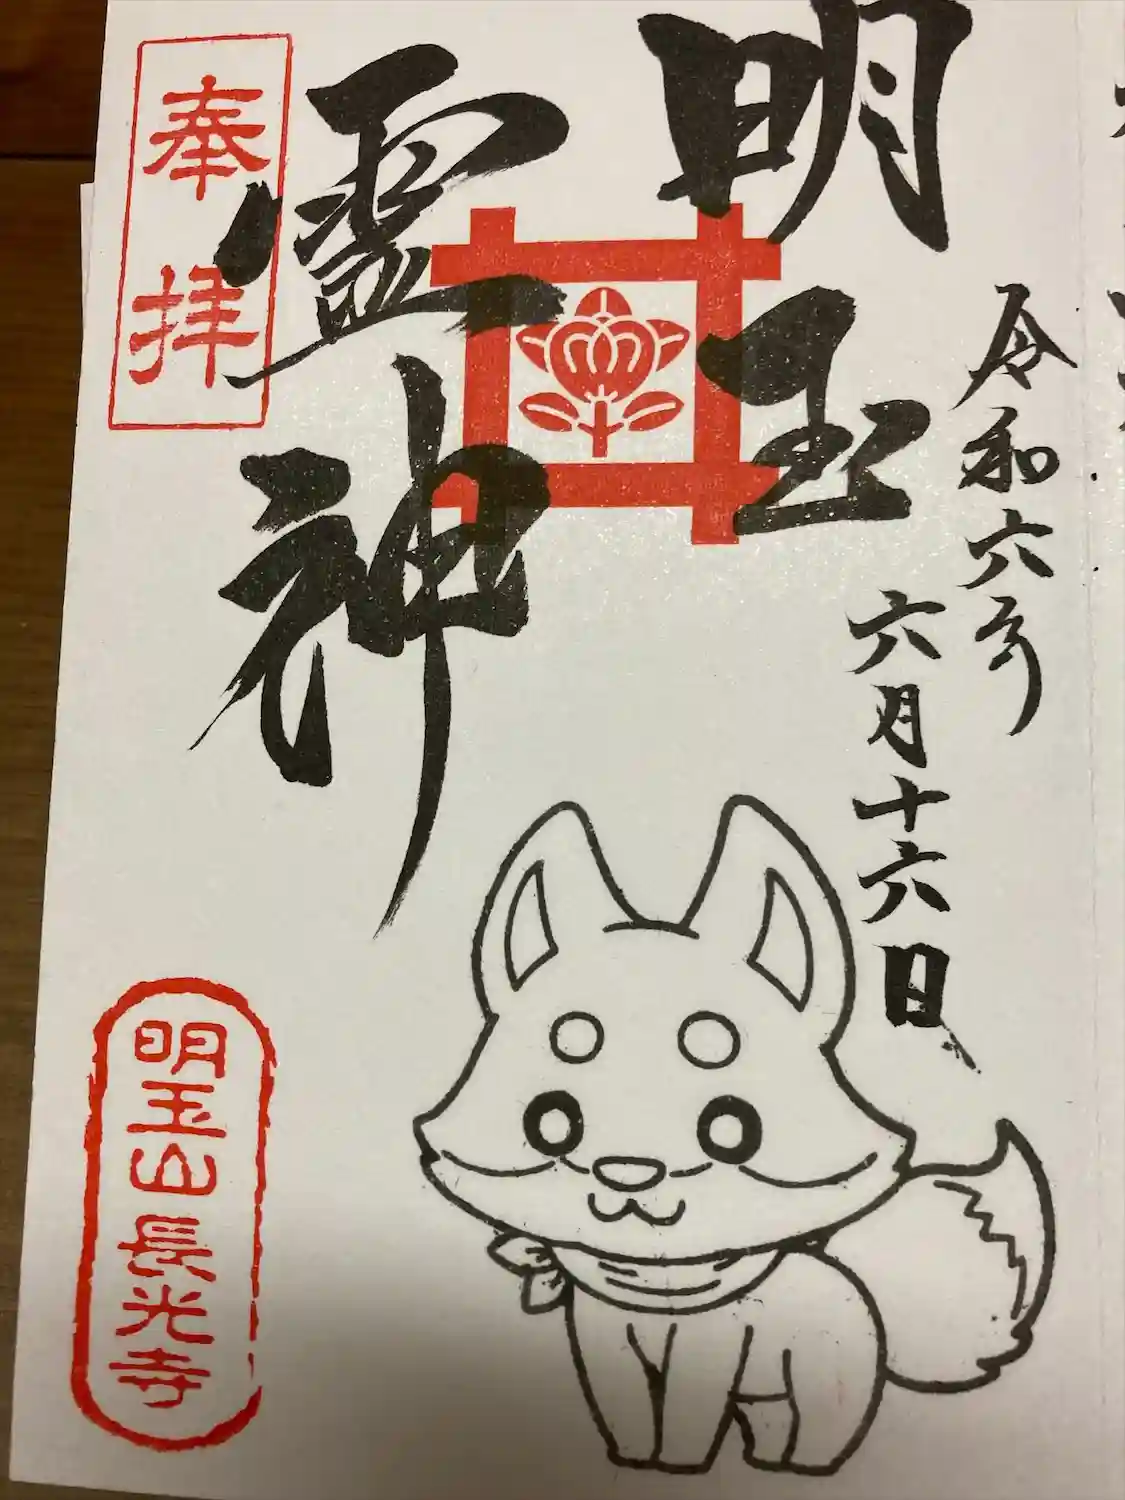 令和六年
六月十六日
明玉
霊神
奉拝
明玉山長光寺